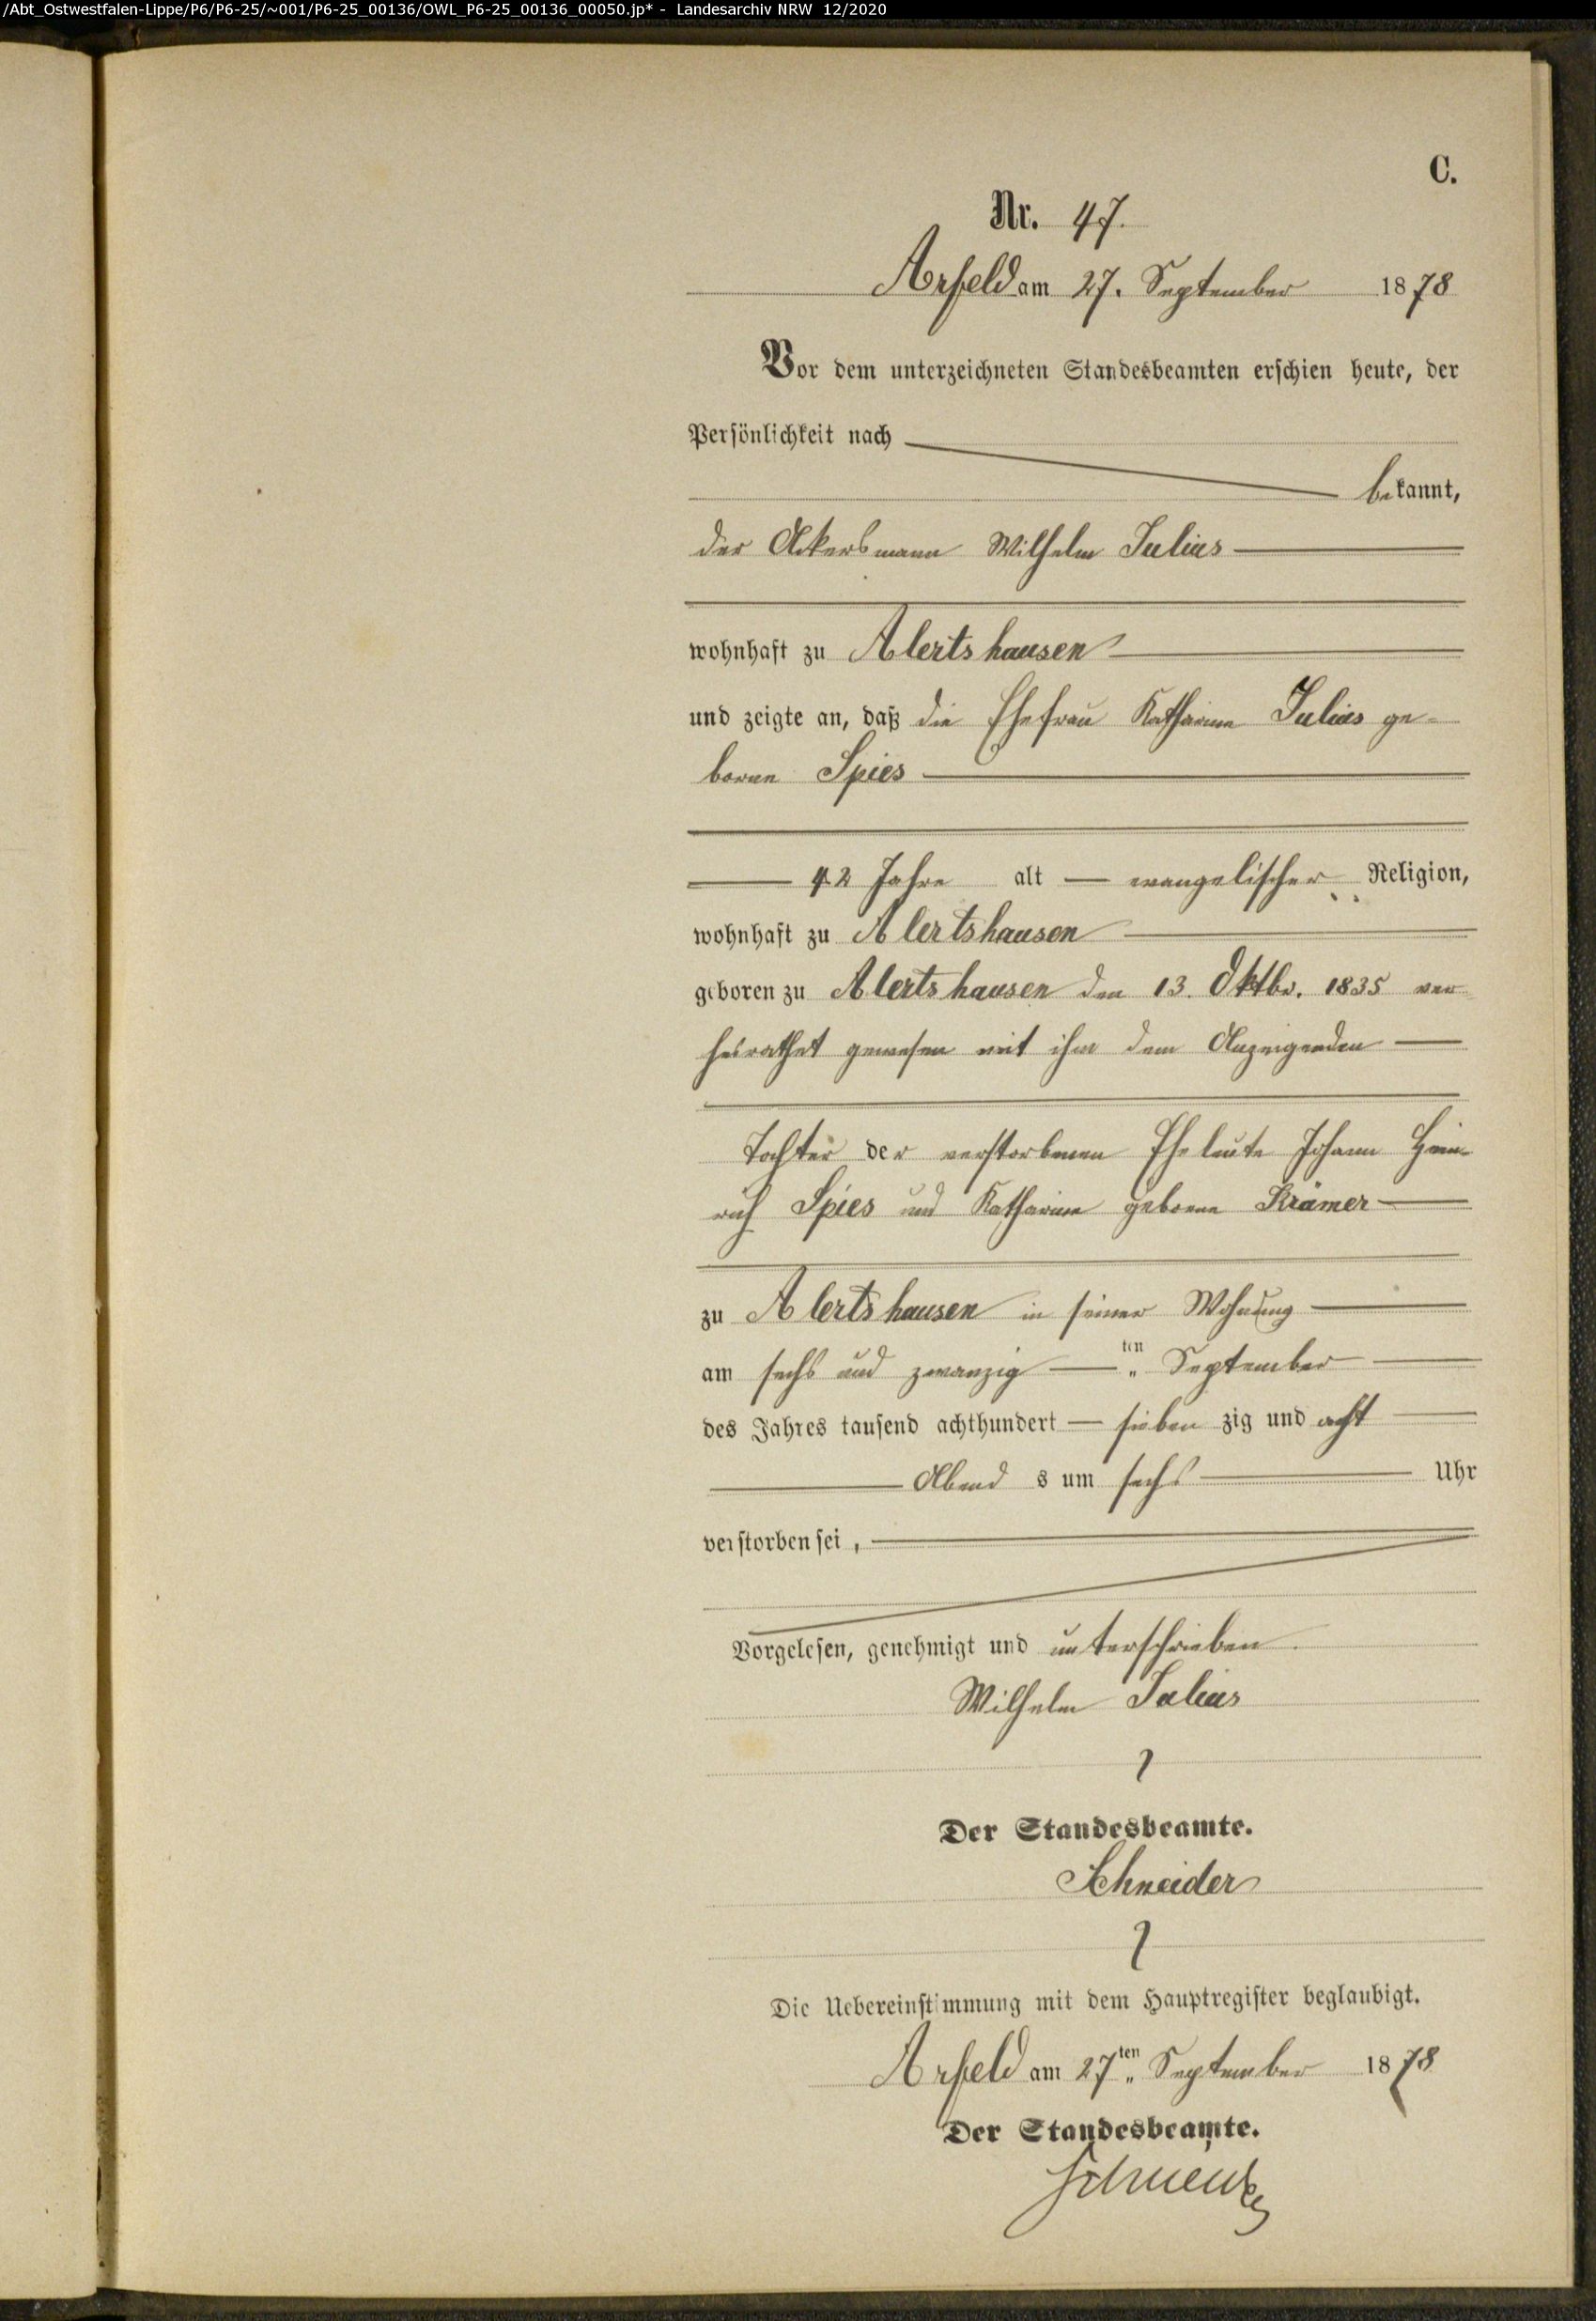 /Abt_Ostwestfalen-Lippe/P6/P6-25/~001/P6-25_00136/OWL_P6-25_00136_00050.jp* - Landesarchiv NRW 12/2020
C.
Nr. 47.
Arfeld am 27. September 1878
Vor dem unterzeichneten Standesbeamten erschien heute, der
Persönlichkeit nach
bekannt,
der Ackersmann Wilhelm Julius
wohnhaft zu Alertshausen
und zeigte an, daß die Ehefrau Katharine Julius ge-
borne Spies
42 Jahre alt evangelischer Religion,
wohnhaft zu Alertshausen
geboren zu Alertshausen den 13. Oktbr. 1835 ver
heirathet gewesen mit ihm dem Anzeigenden
Tochter der verstorbenen Eheleute Johann Hein-
rich Spies und Katharine geborne Krämer
zu Alertshausen in seiner Wohnung
am sechs und zwanzig ten September
des Jahres tausend achthundert sieben zig und acht
Abend s um sechs Uhr
verstorben sei,
Vorgelesen, genehmigt und unterschrieben.
Wilhelm Julius
Der Standesbeamte.
Schneider
Die Uebereinstimmung mit dem Hauptregister beglaubigt.
Arfeld am 27ten September 1878
Der Standesbeamte.
Schneider